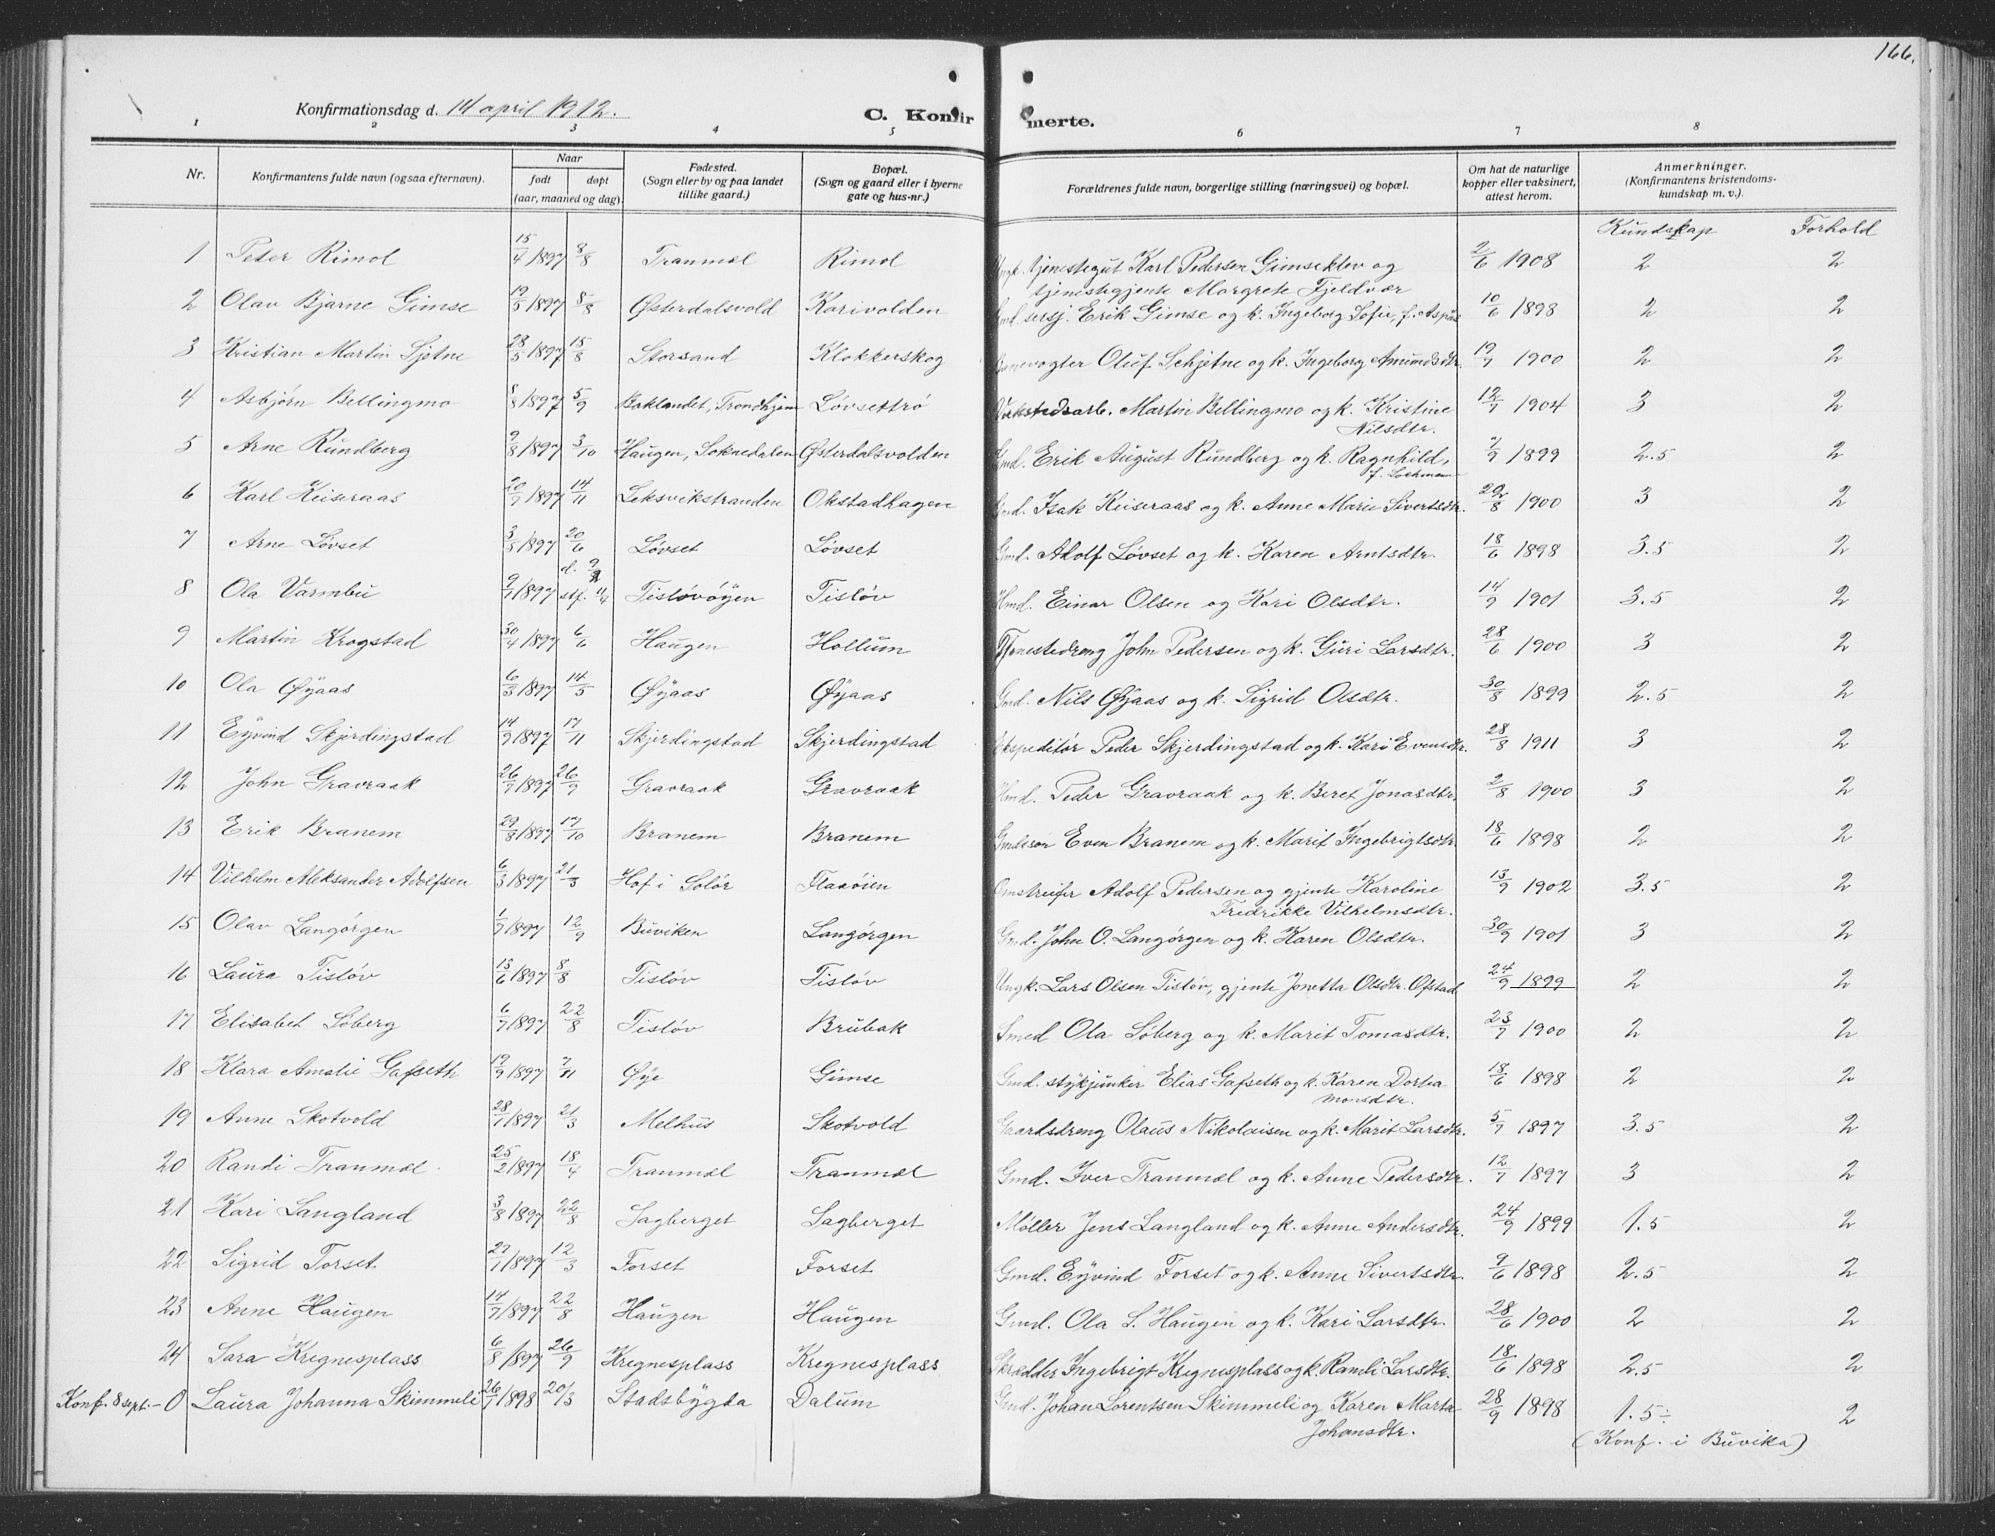 166.
Konfirmationsdag d. 14 april 1912.
C. Konfirmerte.
1 2 3 4 5 6 7 8
Nr. Konfirmantens fulde navn (ogsaa efternavn). Naar født døpt (aar, maaned og dag) Fødested. (Sogn eller by og paa landet tillike gaard.) Bopæl. (Sogn og gaard eller i byerne gate og hus-nr.) Forældrenes fulde navn, borgerlige stilling (næringsvei) og bopæl. Om hat de naturlige kopper eller vaksinert, attest herom. Anmerkninger. (Konfirmantens kristendoms-kundskap m. v.).
Kundskap Forhold
1 Peter Rimol 15/4 1897 8/8 Tranmæl Rimol Ungk. tjenestegut Karl Pedersen Gimseklev og 2/6 1908 2 2
tjenestegjente Margrete Fjeldvær
2 Olav Bjarne Gimse 19/5 1897 8/8 Østerdalsvold Karivolden sersj. Erik Gimse og k. Ingeborg Sofie, f. Aspaas 10/6 1898 2 2
3 Kristian Martin Sjetne 28/5 1897 15/8 Storsand Klokkerskog Banevogter Oluf Schjetne og k. Ingeborg Amundsdtr. 19/7 1900 2 2
4 Asbjørn Bellingmo 8/8 1897 5/9 Baklandet, Trondhjem Løvsettrø Verkstedsarb. Martin Bellingmo og k. Kristine 12/7 1904 3 2
Nilsdtr.
5 Arne Rundberg 9/8 1897 3/10 Haugen, Soknedalen Østerdalsvolden Gmd. Erik August Rundberg og k. Ragnhild, 7/9 1899 2.5 2
f. Lochmann
6 Karl Keiseraas 20/7 1897 14/11 Leksvikstranden Okstadhagen Gmd. Isak Keiseraas og k. Anne Marie Sivertsdtr. 29/8 1900 3 2
7 Arne Løvset 3/5 1897 20/6 Løvset Løvset Gmd. Adolf Løvset og k. Karen Arntsdtr. 18/6 1898 3.5 2
8 Ola Varmbu 9/7 1897 stf. 11/4 Tisløvøyen Tisløv Hmd. Einar Olsen og Kari Olsdtr. 14/9 1901 3.5 2
9 Martin Krogstad 30/4 1897 6/6 Haugen Hollum Tjenestedreng John Pedersen og k. Guri Larsdtr. 28/6 1900 3 2
10 Ola Øyaas 6/3 1897 14/5 Øyaas Øyaas Gmd. Nils Øyaas og k. Sigrid Olsdtr. 30/8 1899 2.5 2
11 Eyvind Skjerdingstad 14/9 1897 17/11 Skjerdingstad Skjerdingstad Ekspeditør Peder Skjerdingstad og k. Kari Evensdtr. 28/8 1911 3 2
12 John Gravraak 26/7 1897 26/9 Gravraak Gravraak Hmd. Peder Gravraak og k. Beret Jonasdtr. 2/8 1900 3 2
13 Erik Branem 29/8 1897 17/10 Branem Branem Gmdsøn Even Branem og k. Marit Ingebrigtsdtr. 18/6 1898 2 2
14 Vilhelm Aleksander Adolfsen 6/3 1897 21/3 Hof i Solør Flaaøien Omstreifer Adolf Pedersen og gjente Karoline 13/9 1902 3.5 2
Fredrikke Vilhelmsdtr.
15 Olav Langørgen 1/7 1897 12/9 Buviken Langørgen Gmd. John O. Langørgen og k. Karen Olsdtr. 30/9 1901 3 2
16 Laura Tisløv 13/6 1897 8/8 Tisløv Tisløv Ungk. Lars Olsen Tisløv, gjente Jonetta Olsdtr. Ofstad 24/9 1899 2 2
17 Elisabet Løberg 6/7 1897 22/8 Tisløv Brubak Smed Ola Løberg og k. Marit Tomasdtr. 23/7 1900 2 2
18 Klara Amalie Gafseth 19/9 1897 7/11 Øye Gimse Gmd. stykjunker Elias Gafseth og k. Karen Dortea 18/6 1898 2 2
Monsdtr.
19 Anne Skotvold 28/1 1897 21/3 Melhus Skotvold Gaardsdreng Olaus Nikolaisen og k. Marit Larsdtr. 5/7 1897 3.5 2
20 Randi Tranmæl 25/2 1897 18/4 Tranmæl Tranmæl Gmd. Iver Tranmæl og k. Anne Pedersdtr. 12/7 1897 3 2
21 Kari Langland 3/8 1897 22/8 Sagberget Sagberget Møller Jens Langland og k. Anne Andersdtr. 24/9 1899 1.5 2
22 Sigrid Forset 27/1 1897 12/3 Forset Forset Gmd. Eyvind Forset og k. Anne Sivertsdtr. 9/6 1898 2.5 2
23 Anne Haugen 14/7 1897 22/8 Haugen Haugen Gmd. Ola L. Haugen og k. Kari Larsdtr. 28/6 1900 2 2
24 Sara Kregnesplass 6/8 1897 26/9 Kregnesplass Kregnesplass Skrædder Ingebrigt Kregnesplass og k. Randi Larsdtr. 18/6 1898 2.5 2
Konf. 8 sept. - 0 Laura Johanna Skimmeli 26/1 1898 20/3 Stadsbygda Dalum Gmd. Johan Lorentsen Skimmeli og Karen Marta 28/9 1898 1.5÷ 2
Johansdtr. (Konf. i Buvika)